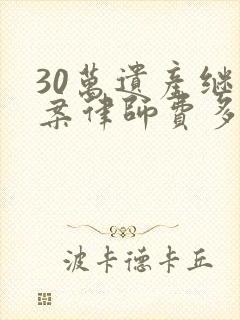 30萬遺產继
案律師費多
波卡德卡丘